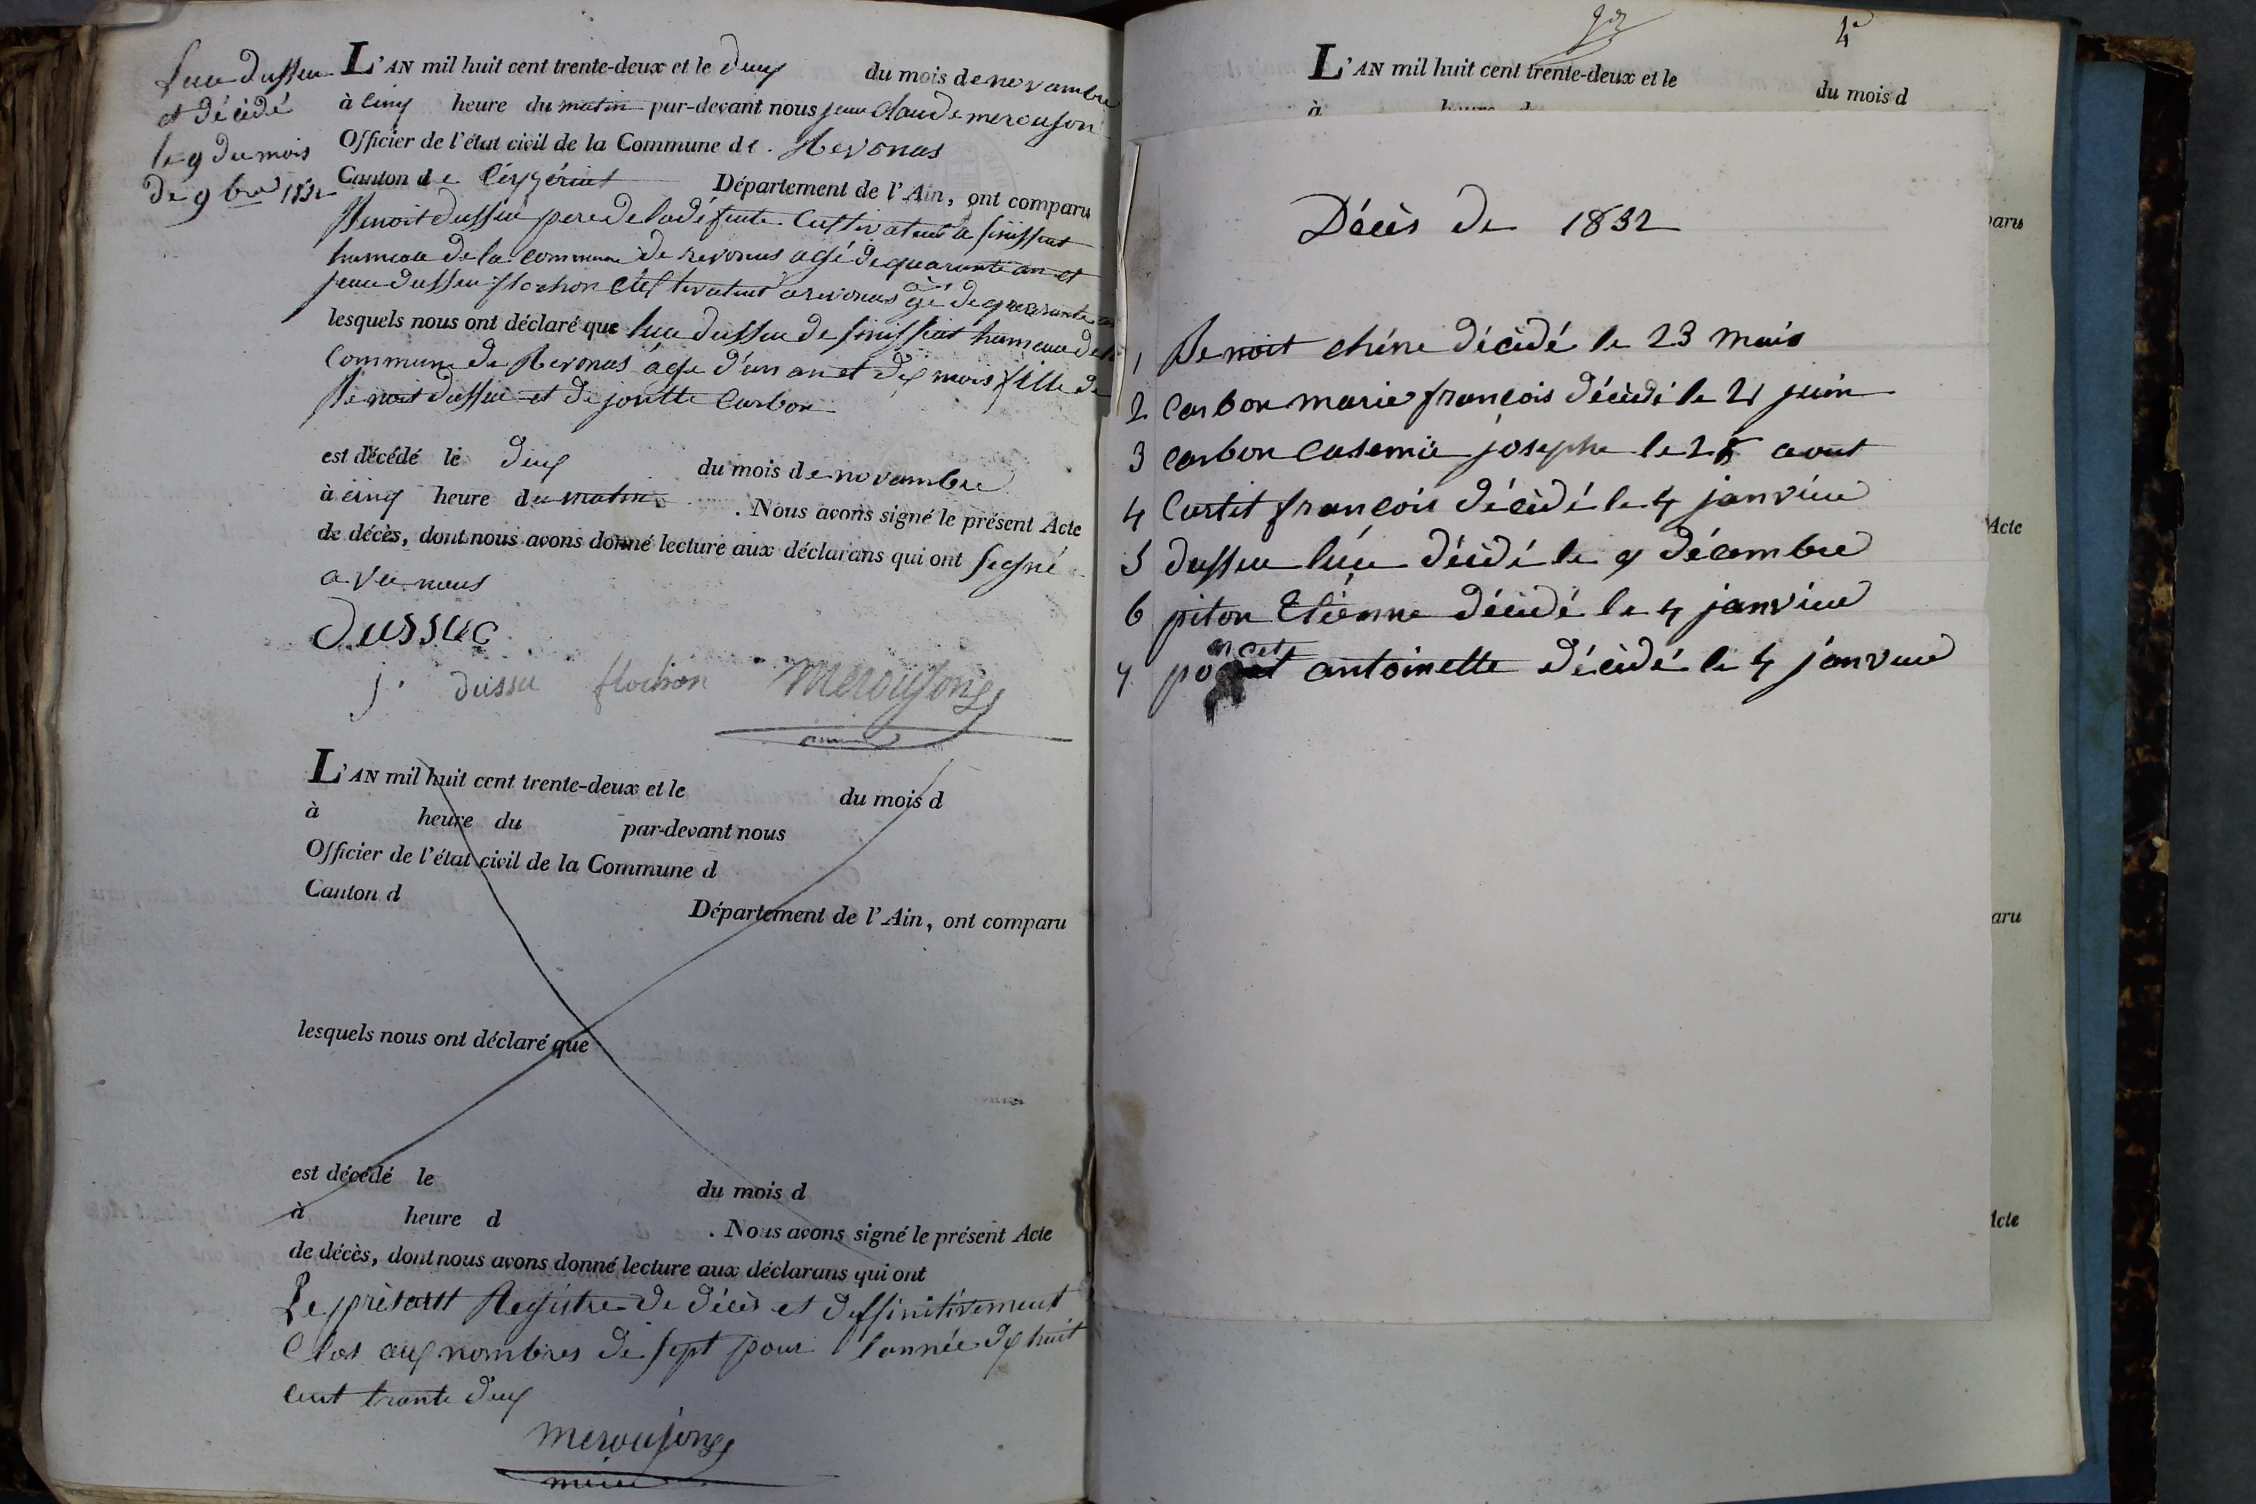 Luce dussuc
et décédé
le 9 du mois
de 9bre 1832
L'AN mil huit cent trente-deux et le deux du mois de novambre
à cinq heure du matin par-devant nous jean Claude merouson
Officier de l'état civil de la Commune de Revonas
Canton de Ceyzériat Département de l'Ain, ont comparu
Benoit dussuc pere de la défunte Cultivateur a
hameau de la Commune de revonas agé de quarante an et
jean dussuc flochon Cultivateur a revonas agé de quarante an
lesquels nous ont déclaré que luce dussuc de hameau de la
Commune de Revonas agé d'un an et dix mois fille de
Benoit dussuc et de Carbon
est décédé le deux du mois de novambre
à cinq heure du matin. Nous avons signé le présent Acte
de décès, dont nous avons donné lecture aux déclarans qui ont segné
avec nous
Dussuc
j. dussu flochon merouson
maire
L'AN mil huit cent trente-deux et le du mois d
à heure du par-devant nous
Officier de l'état civil de la Commune d
Canton d Département de l'Ain, ont comparu
lesquels nous ont déclaré que
est décédé le du mois d
à heure d . Nous avons signé le présent Acte
de décès, dont nous avons donné lecture aux déclarans qui ont
Le prèsant Registre de décès et deffinitivement
Clos aux nombres de sept pour l'année dix huit
cent trante deux
merouson
maire
4e
L'AN mil huit cent trente-deux et le du mois d
à heure du
paru
Acte
aru
Acte
Décès de 1832
1 Benoit chêne décèdé le 23 mais
2 Carbon marie françois décèdé le 21 juin
3 carbon Casemir josephe le 28 aout
4 Curtet françois décèdé le 4 janvier
5 dussuc luce décèdé le 9 décembre
6 piton Etiènne décèdé le 4 janvier
7 poncet antoinette décèdé le 4 janvier